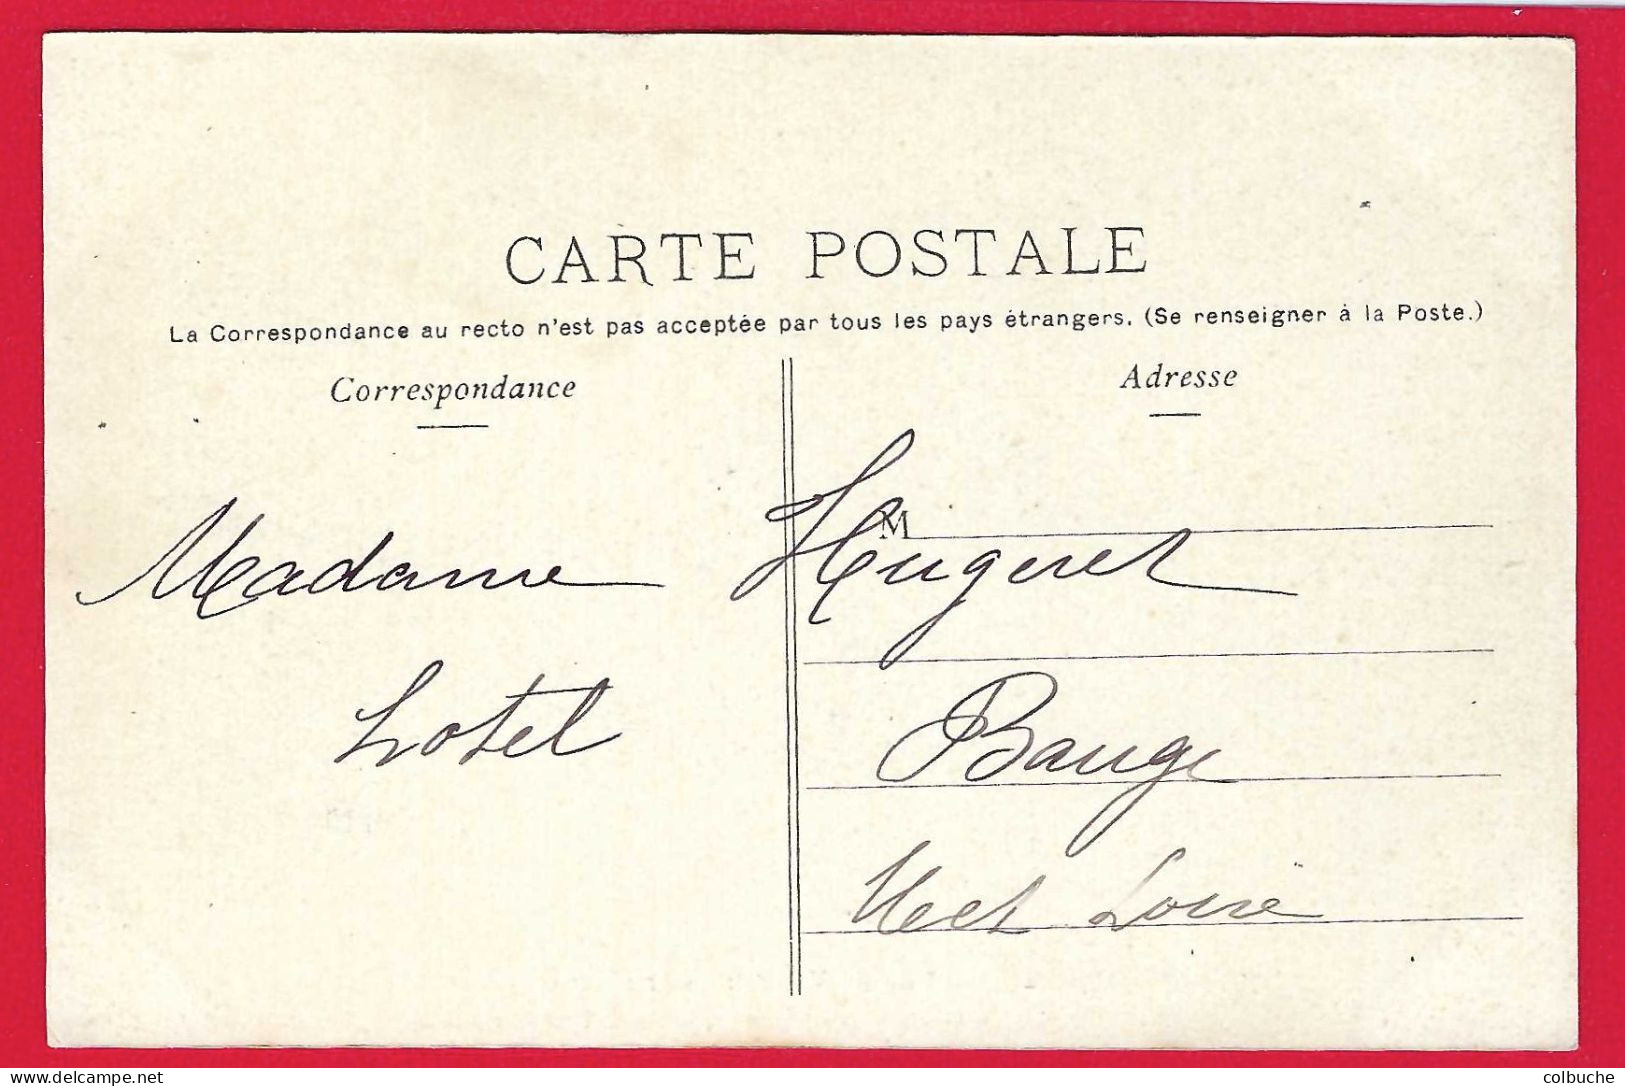 CARTE POSTALE
La Correspondance au recto n'est pas acceptée par tous les pays étrangers. (Se renseigner à la Poste.)
Correspondance
Adresse
M
Madame Hugeret
hotel
Bauge
Met Loire
delcampe.net
colbuche